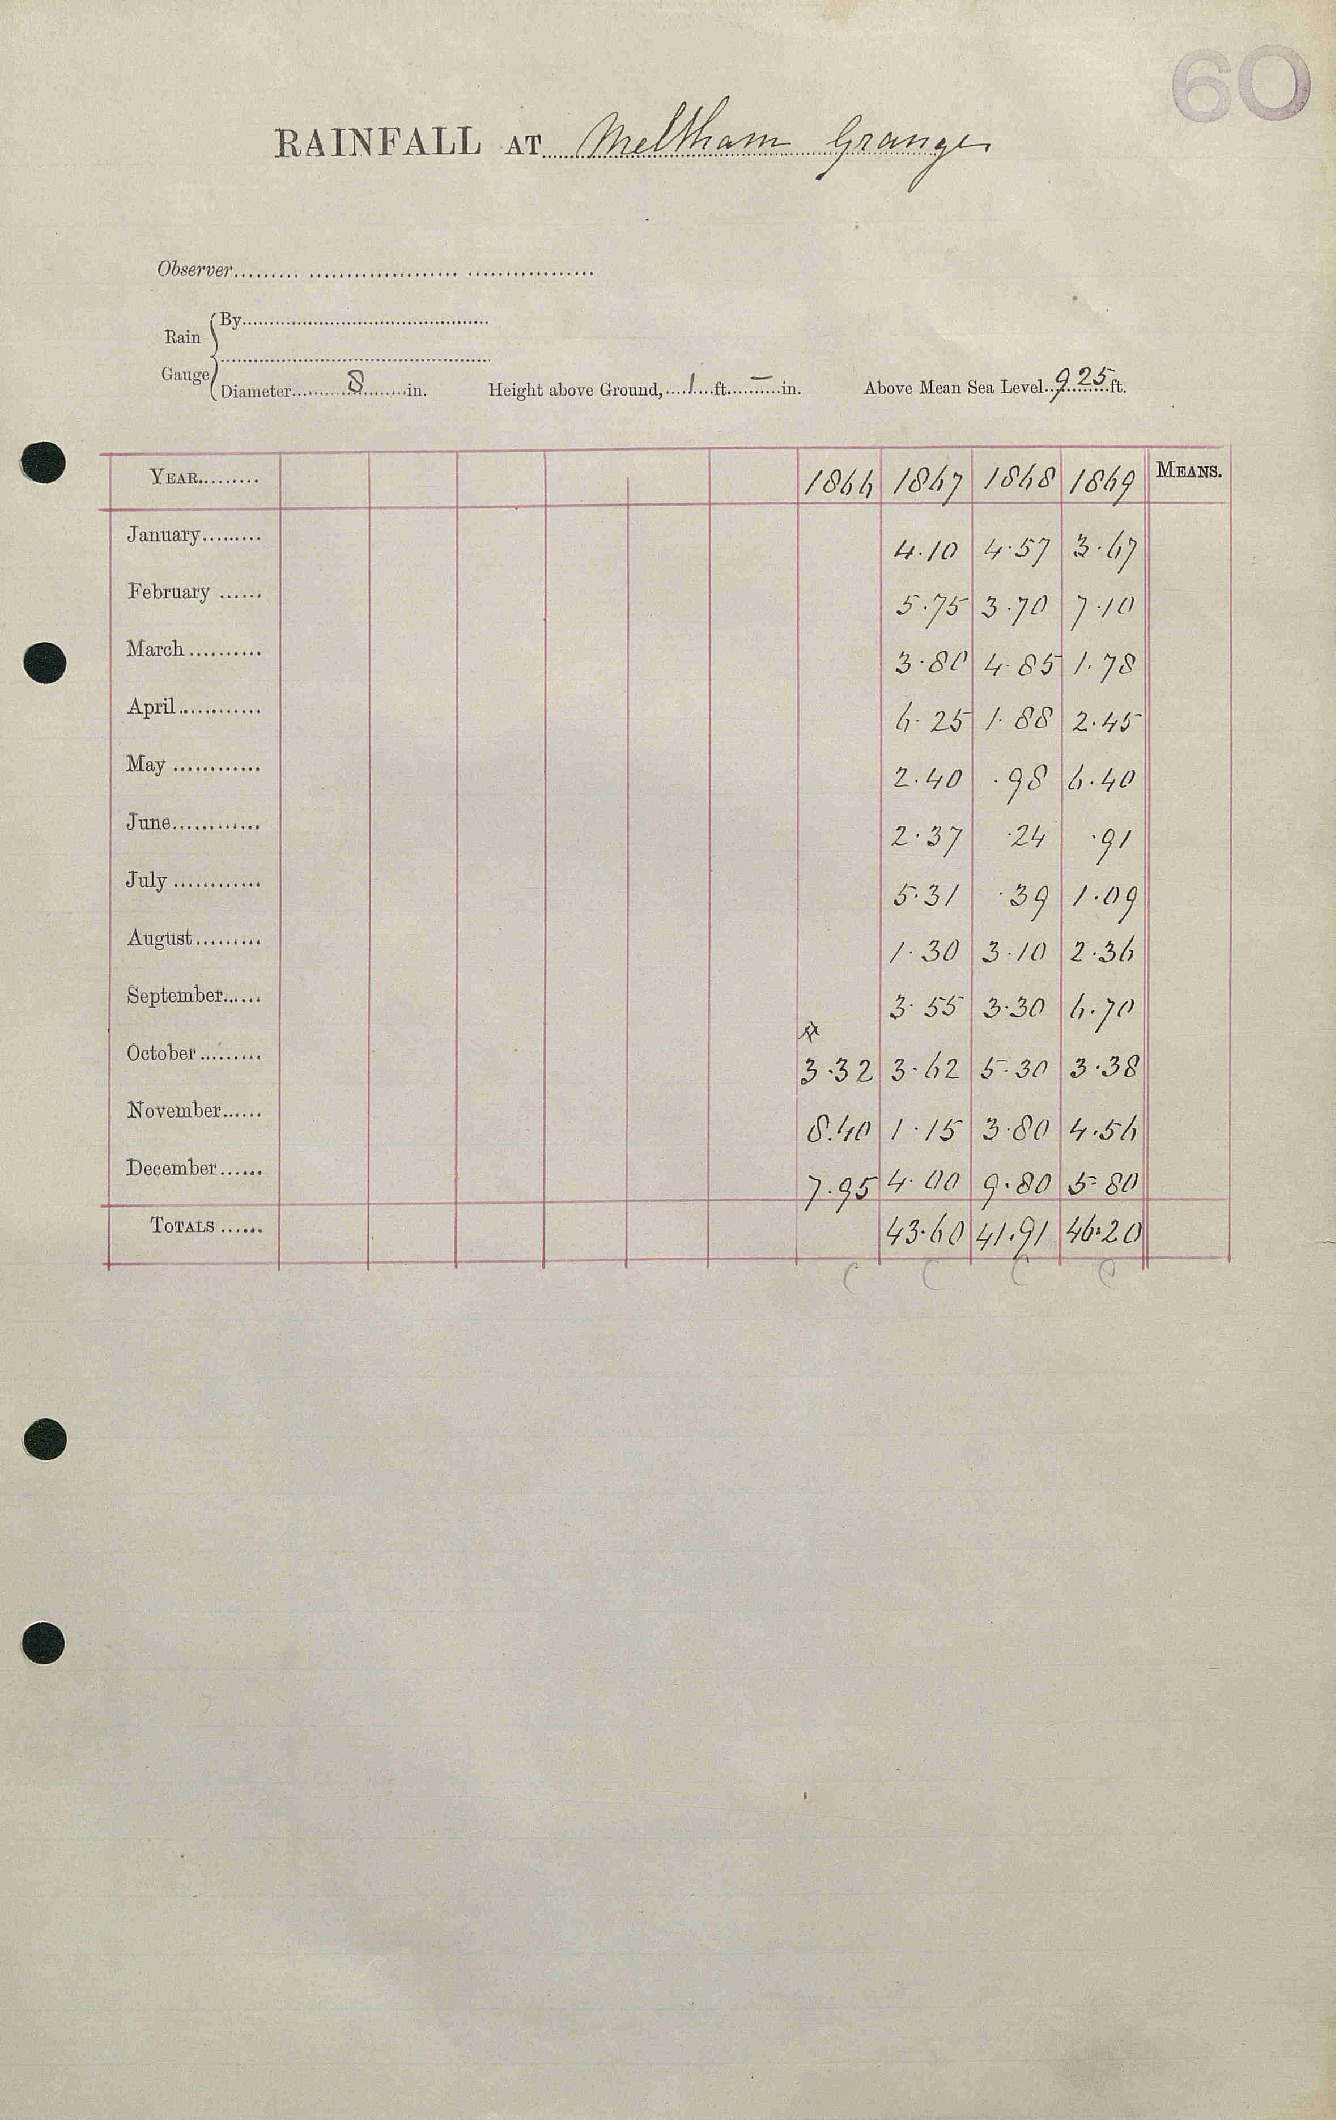 60
RAINFALL AT Meltham Grange
Observer
Rain Gauge
By
Diameter 8 in. Height above Ground, 1 ft. – in. Above Mean Sea Level 925 ft.
YEAR 1866 1867 1868 1869 MEANS.
January 4.10 4.57 3.67
February 5.75 3.70 7.10
March 3.80 4.85 1.78
April 6.25 1.88 2.45
May 2.40 .98 6.40
June 2.37 .24 .91
July 5.31 .39 1.09
August 1.30 3.10 2.36
September 3.55 3.30 6.70
October 3.32 3.62 5.30 3.38
November 8.40 1.15 3.80 4.56
December 7.95 4.00 9.80 5.80
TOTALS 43.60 41.91 46.20
C C C C